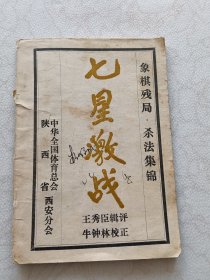 象棋残局·杀法集锦
七星激战
王秀臣辑评
牛钟林校正
中华全国体育总会
陕西省西安分会